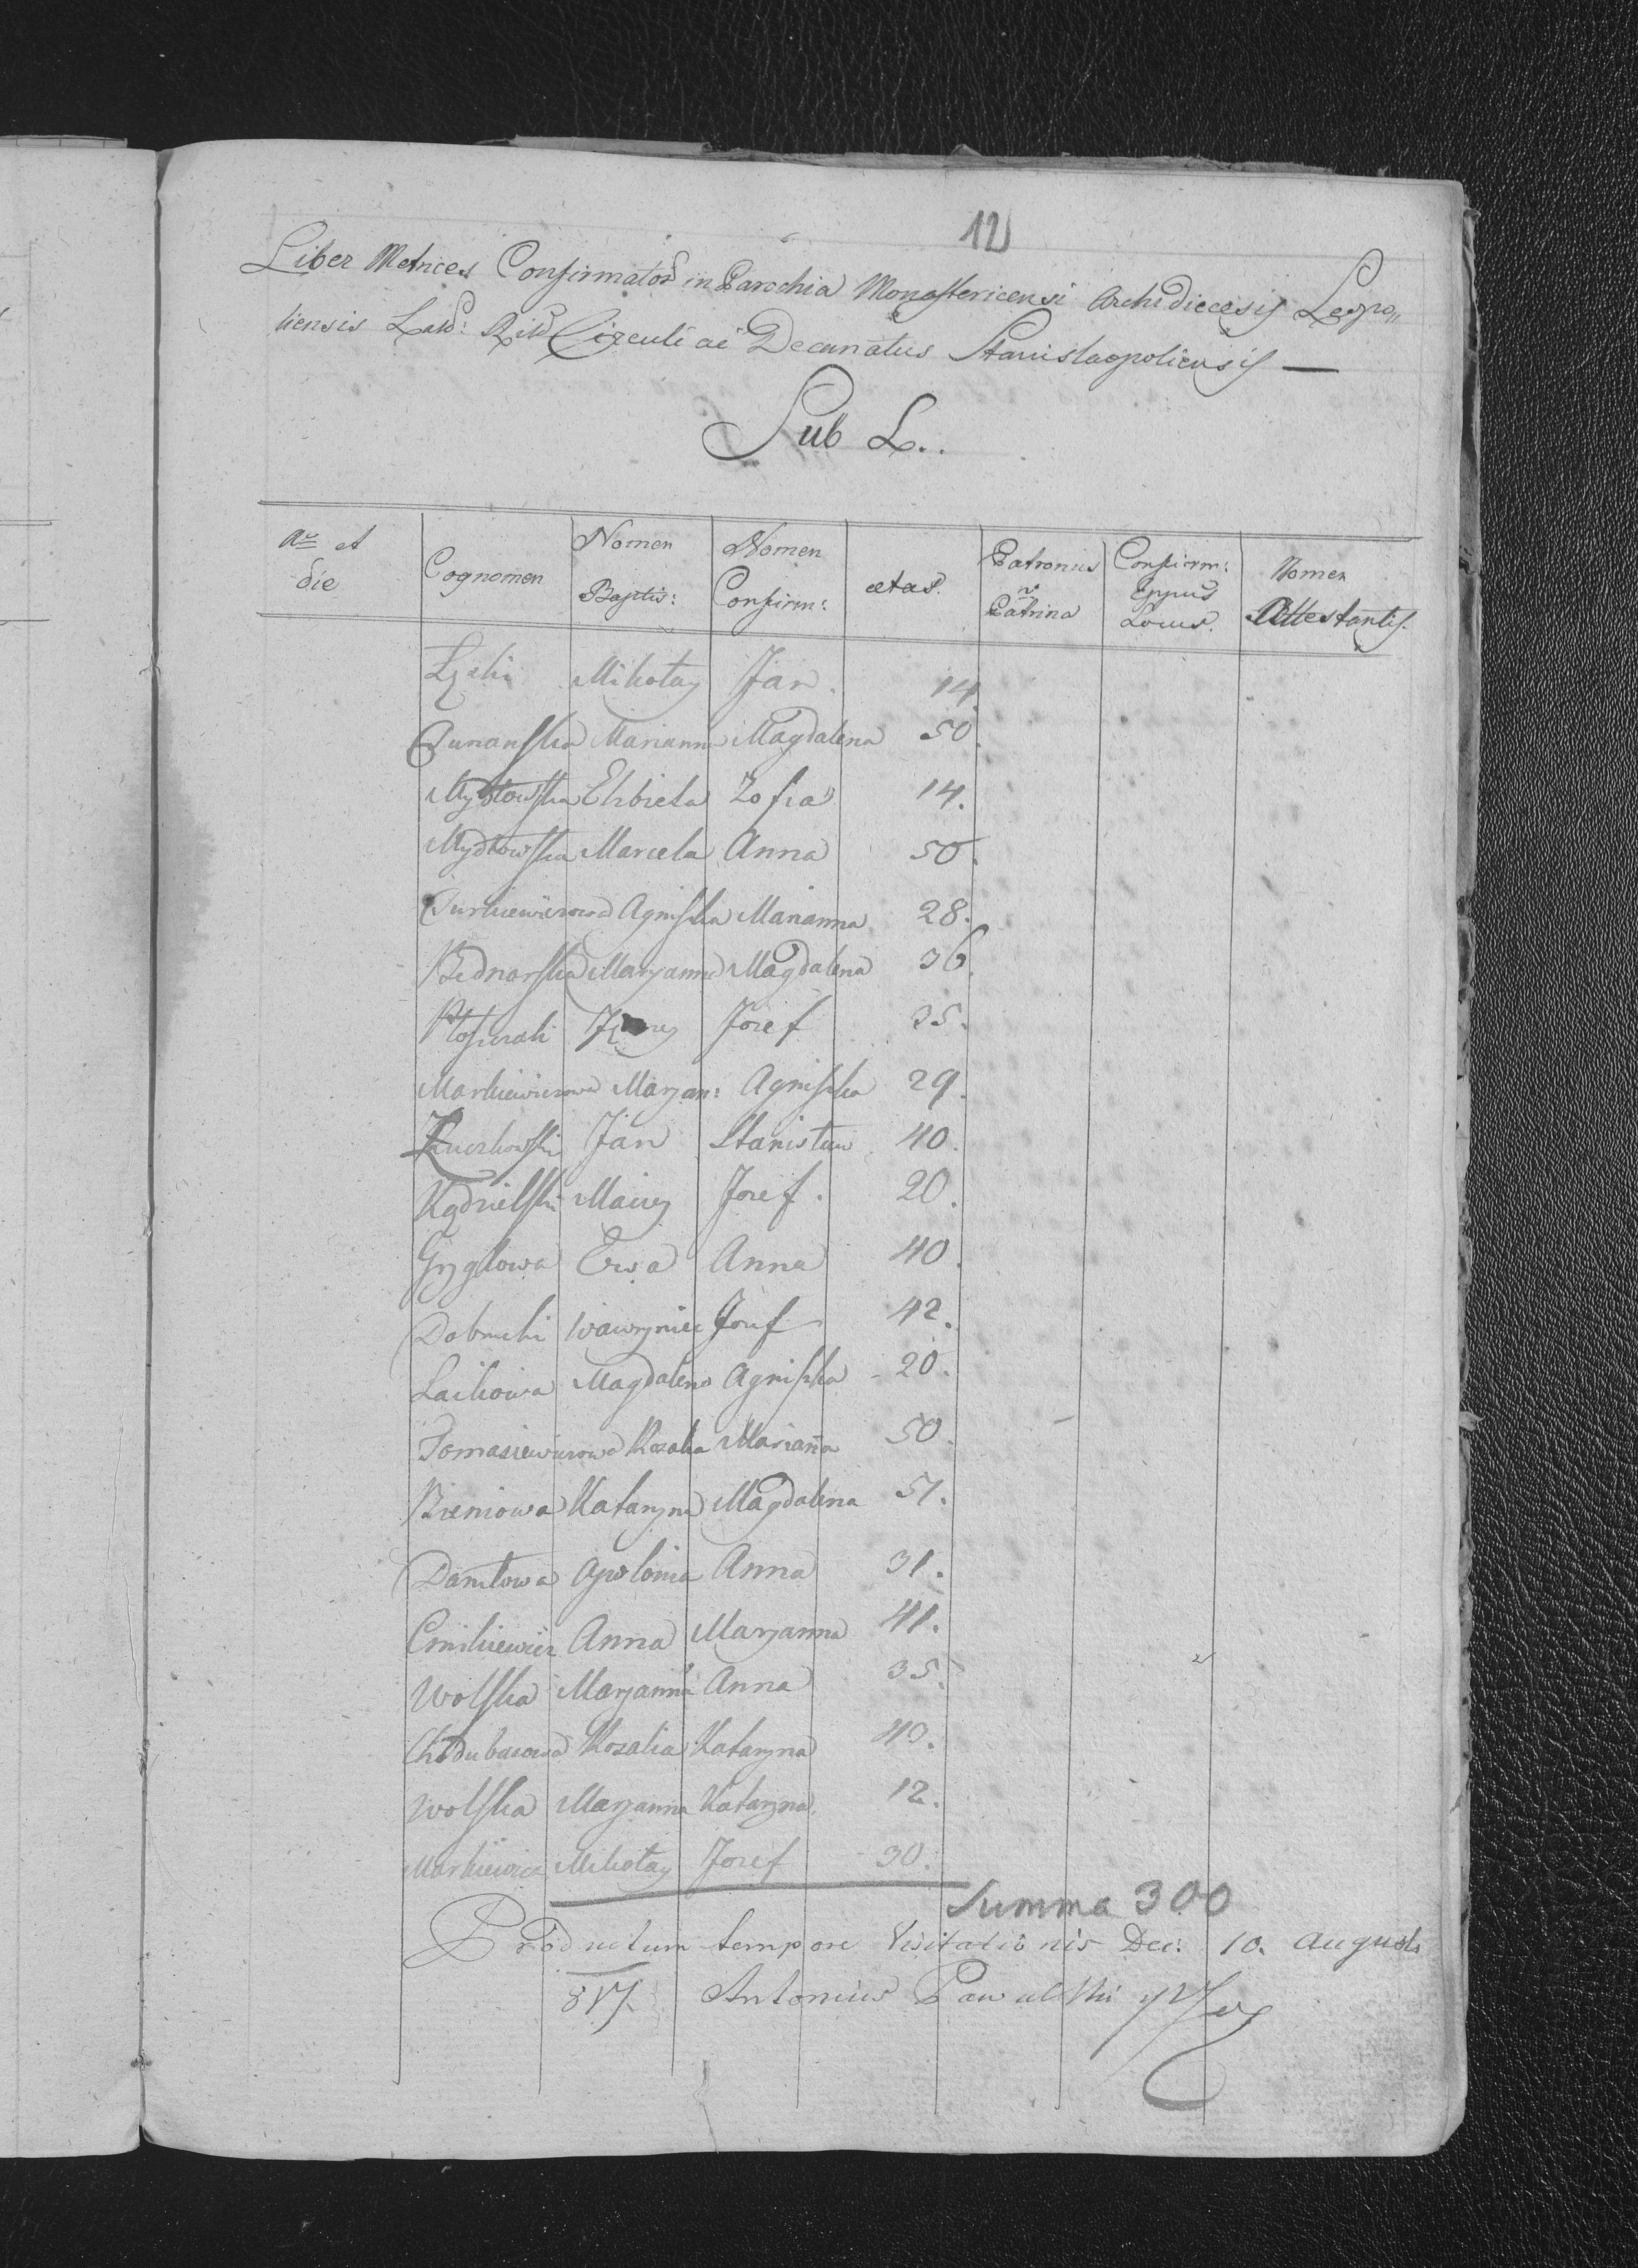 12
Liber Metrices Confirmator in Parochia Monastericensi Archidiecesis Leopo„
liensis Lat: Rit Circuli ac Decanatus Stanislaopoliensis —
Sub L..
Ao et die Cognomen Nomen Baptis: Nomen Confirm: aetas. Patronus v Patrina Confirm: Eppus Locus. Nomen Attestantis.
Mikołay Jan. 14.
Marianna Magdalena 50.
Mydłowska Elzbieta Zofia 14.
Mydłowska Marcela Anna 50.
Agniszka Marianna 28.
Bednarska Maryanna Magdalena 36.
Jozef 35.
Markiewiczowa Maryan: Agniszka 29.
Jan Stanisław 40.
Kądzielski Maciey Jozef. 20.
Gryglowa Ewa Anna 40.
Dobrucki Wawrzyniec Jozef 42.
Laikowa Magdalena Agniszka - 20.
Tomasiewiczowa Rozalia Marianna 50.
Bieniowa Katarzyna Magdalena 51.
Daniłowa Apolonia Anna 31.
Anna Maryanna 41.
Wolska Maryanna Anna 35.
Rozalia Katarzyna 40.
Wolska Maryanna Katarzyna. 12.
Markiewicz Mikołay Jozef 30.
Summa 300
Productum tempore Visitationis Dec: 10. Augusti
817. Antonius